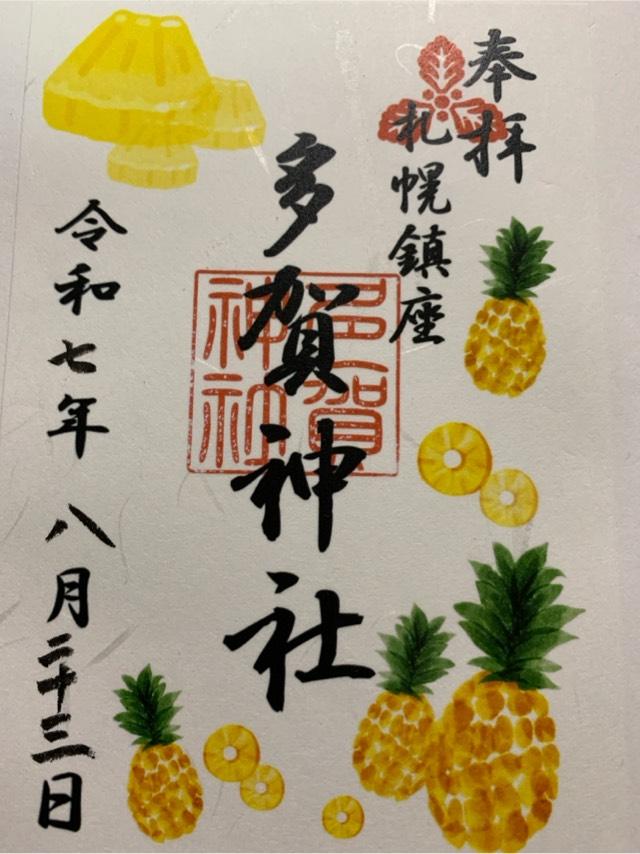 奉拝
札幌鎮座
多賀神社
多賀神社
令和七年 八月二十三日